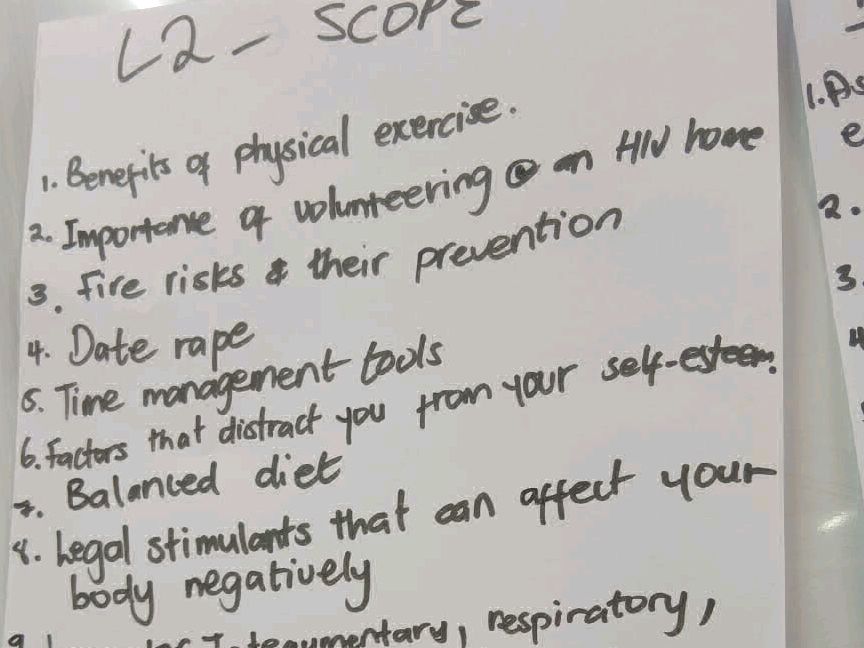 L2 - SCOPE
1. Benefits of physical exercise.
2. Importance of volunteering @ an HIV home
3. Fire risks & their prevention
4. Date rape
5. Time management tools
6. Factors that distract you from your self-esteem.
7. Balanced diet
8. Legal stimulants that can affect your
body negatively
9. Integumentary, respiratory,
1.
e
2.
3.